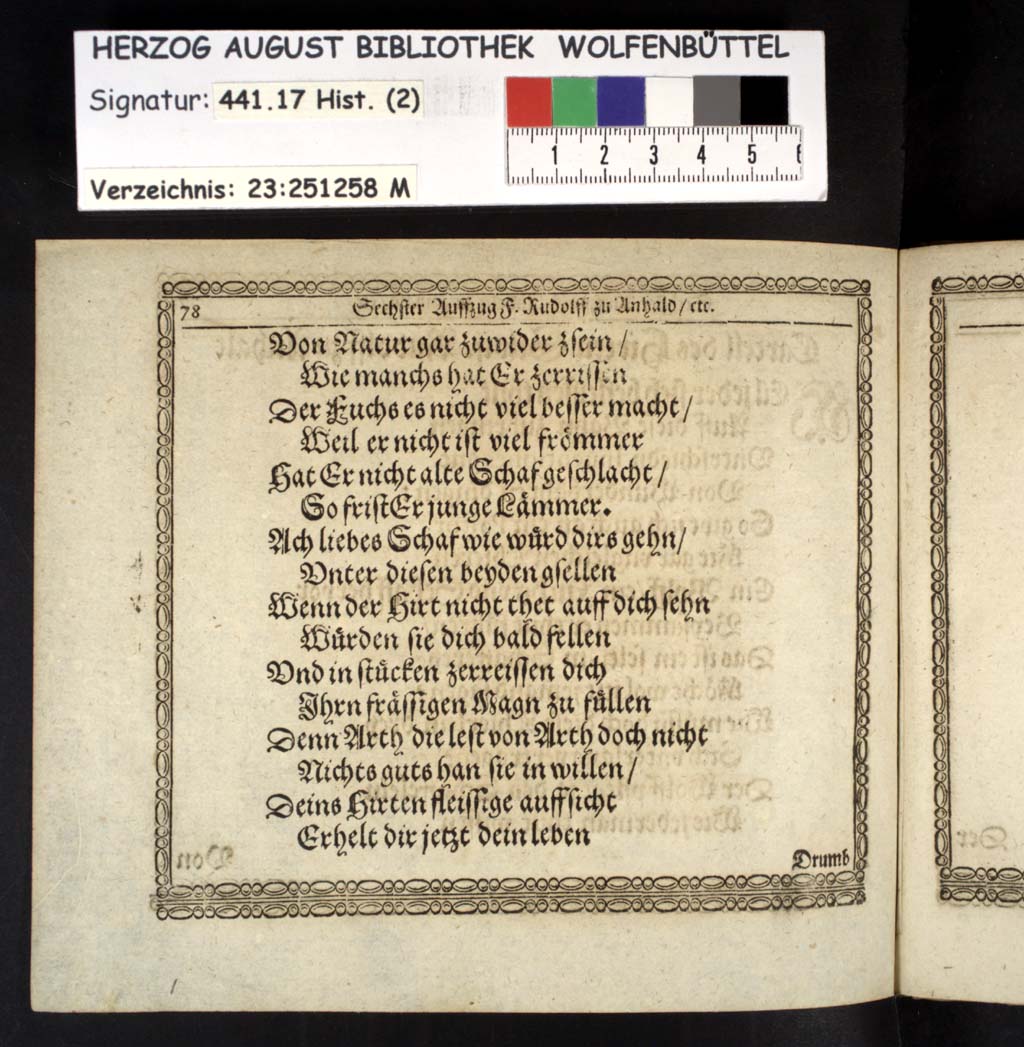 HERZOG AUGUST BIBLIOTHEK WOLFENBÜTTEL
Signatur: 441.17 Hist. (2)
1 2 3 4 5 6
Verzeichnis: 23:251258 M
78 Sechster Auffzug F. Rudolff zu Anhald / etc.
Von Natur gar zuwider zsein /
Wie manchs hat Er zerrissen
Der Fuchs es nicht viel besser macht /
Weil er nicht ist viel frömmer
Hat Er nicht alte Schaf geschlacht /
So frist Er junge Lämmer.
Ach liebes Schaf wie würd dirs gehn /
Vnter diesen beyden gsellen
Wenn der Hirt nicht thet auff dich sehn
Würden sie dich bald fellen
Vnd in stücken zerreissen dich
Ihrn frässigen Magn zu füllen
Denn Arth die lest von Arth doch nicht
Nichts guts han sie in willen /
Deins Hirten fleissige auffsicht
Erhelt dir jetzt dein leben
Drumb